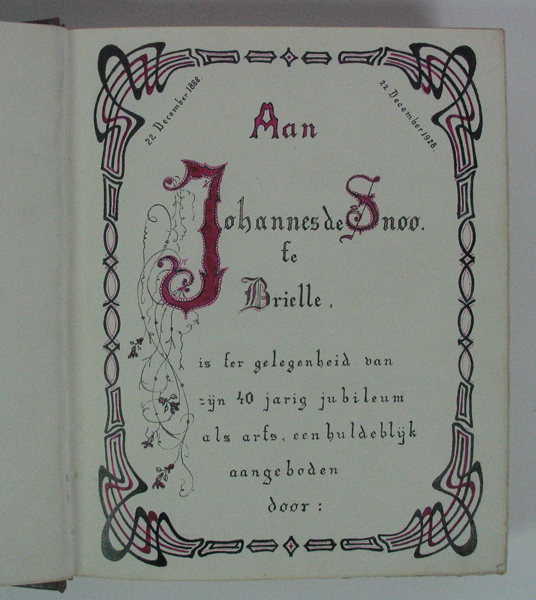 22 December 1888.
22 December 1928.
Aan
Johannes de Snoo.
te
Brielle.
is ter gelegenheid van
zijn 40 jarig jubileum
als arts, een huldeblijk
aangeboden
door :